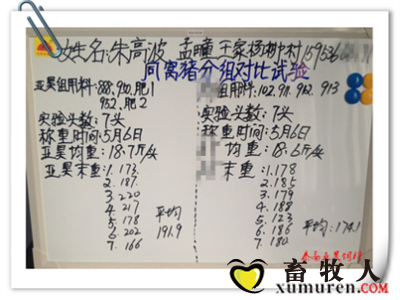 姓名：朱高波 孟疃王家杨树村 159536
同窝猪分组对比试验
亚昊组用料：888、910、肥1
952、肥2
实验头数：7头
称重时间：5月6日
亚昊均重：18.7斤/头
亚昊末重：1.173
2.187
3.220
4.217
5.178
6.202
7.166
平均
191.9
组用料：102、911、912、913
实验头数：7头
称重时间：5月6日
均重：18.6斤/头
末重：1.178
2.185
3.179
4.188
5.123
6.186
7.180
平均：174.1
畜牧人
xumuren.com